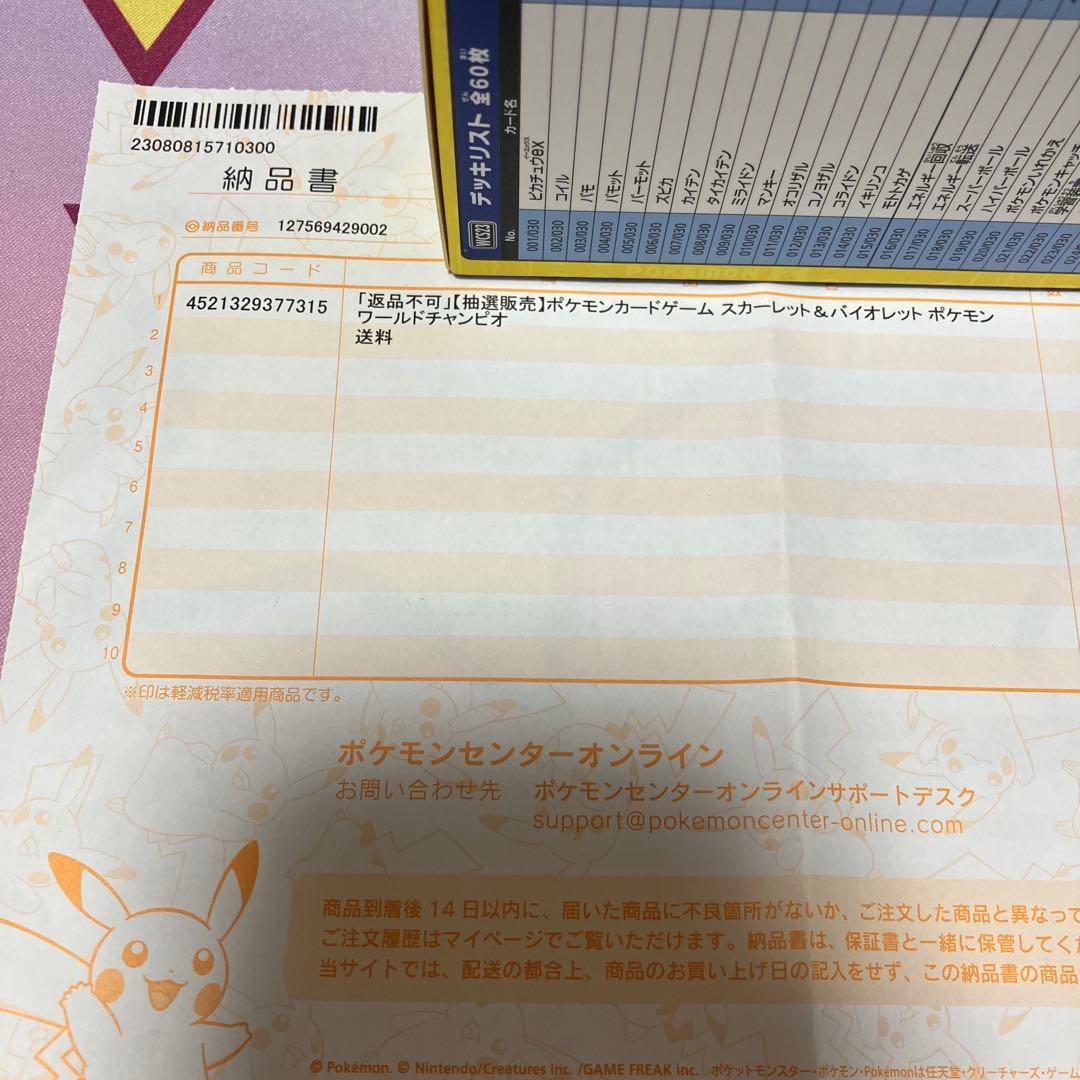 23080815710300
納品書
納品番号 127569429002
商品コード
1 4521329377315 「返品不可」【抽選販売】ポケモンカードゲーム スカーレット&バイオレット ポケモン
ワールドチャンピオ
2 送料
3
4
5
6
7
8
9
10
※印は軽減税率適用商品です。
ポケモンセンターオンライン
お問い合わせ先 ポケモンセンターオンラインサポートデスク
support@pokemoncenter-online.com
商品到着後 14 日以内に、届いた商品に不良箇所がないか、ご注文した商品と異なって
ご注文履歴はマイページでご覧いただけます。納品書は、保証書と一緒に保管してくだ
当サイトでは、配送の都合上、商品のお買い上げ日の記入をせず、この納品書の商品
© Pokémon. © Nintendo/Creatures Inc. /GAME FREAK inc. ポケットモンスター・ポケモン・Pokémonは任天堂・クリーチャーズ・ゲーム
WCS23 デッキリスト 全60枚
No. カード名
001/030 ピカチュウex
002/030 コイル
003/030 パモ
004/030 パモット
005/030 パーモット
006/030 ズピカ
007/030 カイデン
008/030 タイカイデン
009/030 ミライドン
010/030 マンキー
011/030 オコリザル
012/030 コノヨザル
013/030 コライドン
014/030 イキリンコ
015/030 モトトカゲ
016/030 エネルギー回収
017/030 エネルギー転送
018/030 スーパーボール
019/030 ハイパーボール
020/030 ポケモンいれかえ
021/030 ポケモンキャッチ
022/030 学習装置
023/030
POKEMON